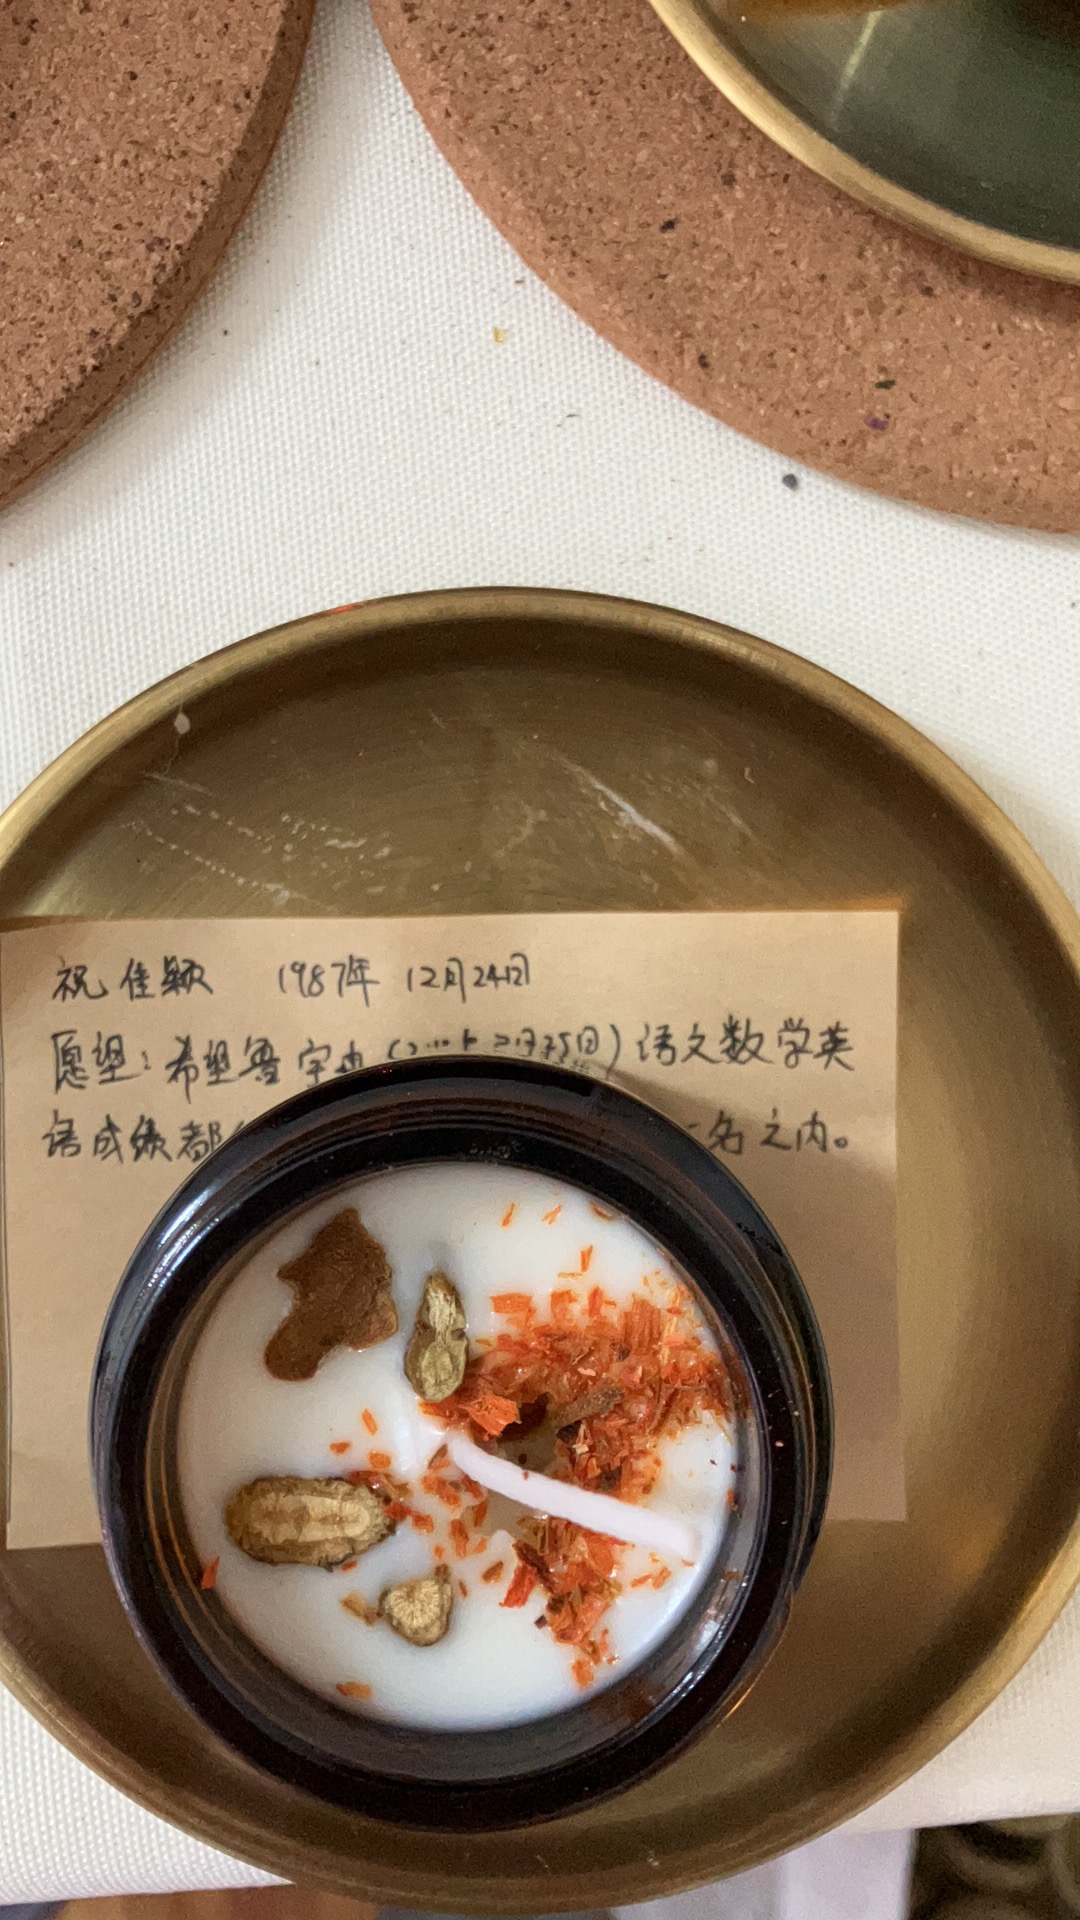 祝佳颖 1987年 12月24日
愿望:希望鲁宇 月25日)语文数学英
语成绩都 名之内。